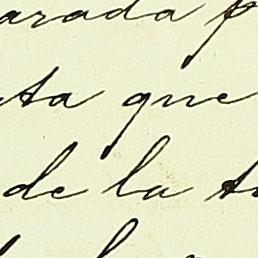 arada p
ta que
de la t